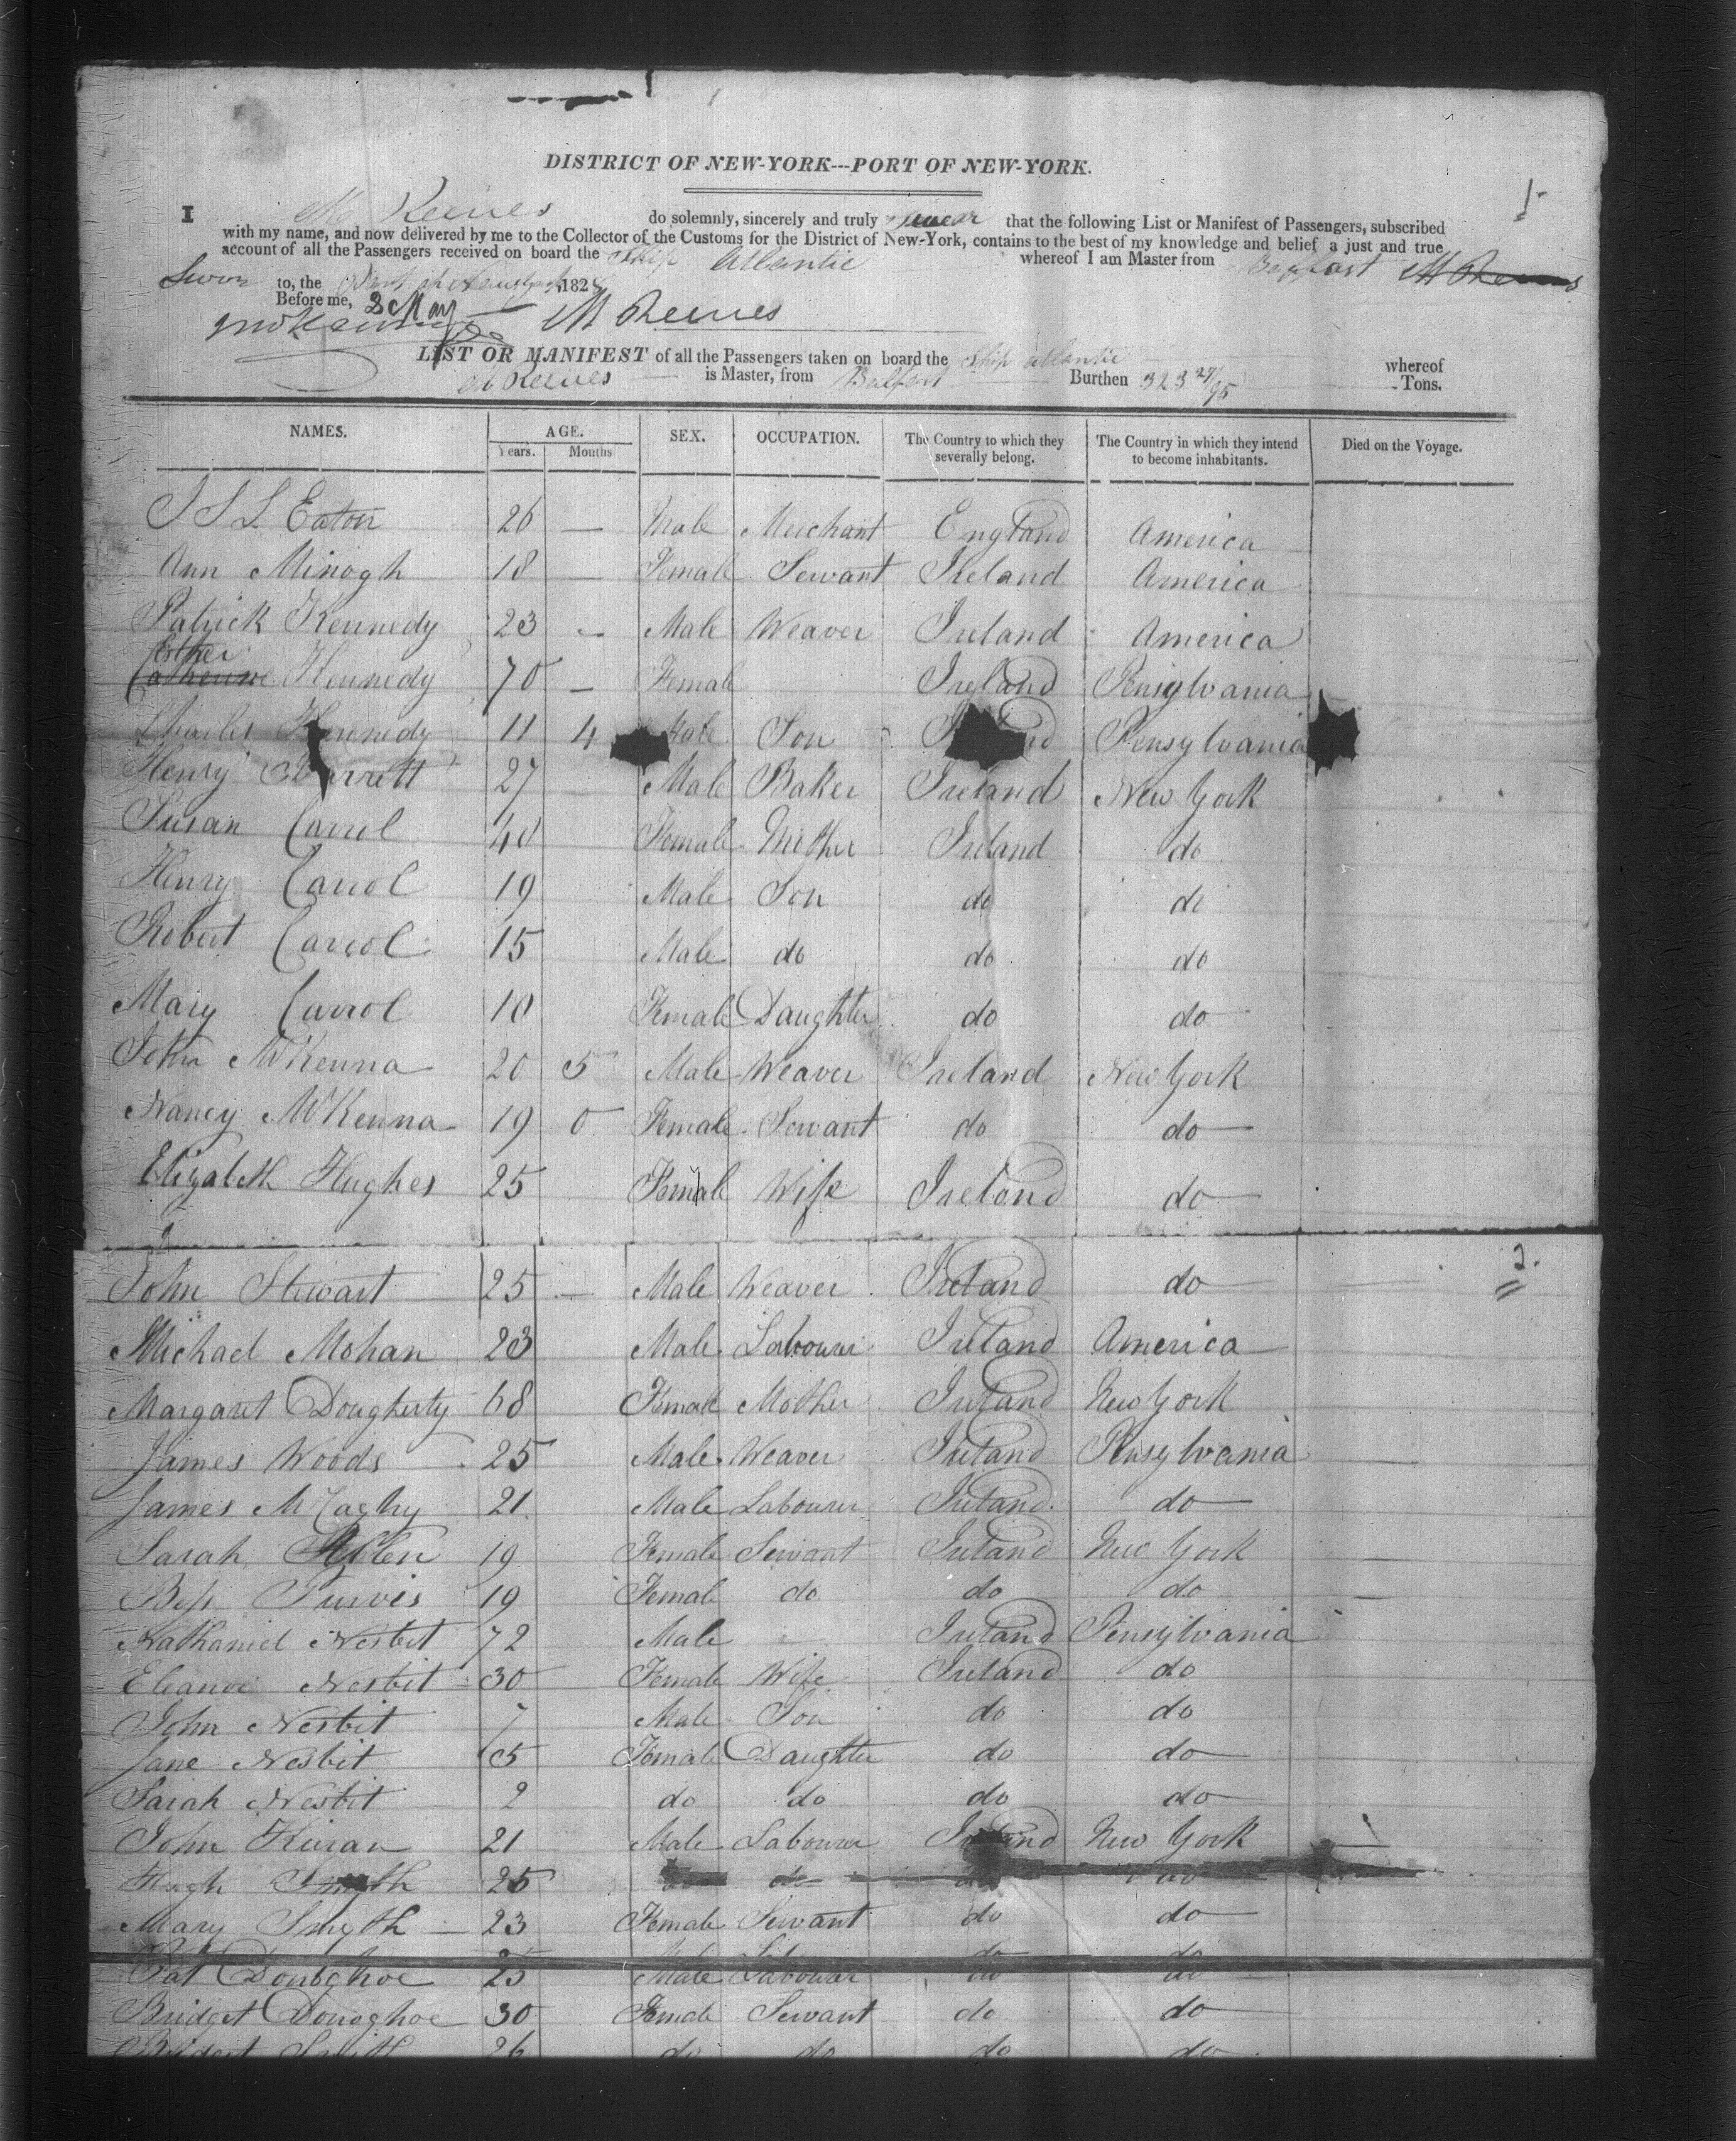 DISTRICT OF NEW-YORK---PORT OF NEW-YORK.
1
I M Reeves do solemnly, sincerely and truly swear that the following List or Manifest of Passengers, subscribed
with my name, and now delivered by me to the Collector of the Customs for the District of New-York, contains to the best of my knowledge and belief a just and true
account of all the Passengers received on board the Ship Atlantic whereof I am Master from Belfast M Reeves
Sworn to, the 182
Before me, 2 May M Reeves
LIST OR MANIFEST of all the Passengers taken on board the Ship Atlantic whereof
M Reeves is Master, from Belfast Burthen 323 27/95 Tons.
NAMES. AGE. SEX. OCCUPATION. The Country to which they severally belong. The Country in which they intend to become inhabitants. Died on the Voyage.
Years. Months
J S L Eaton 26 — Male Merchant England America
Ann Minogh 18 — Female Servant Ireland America
Patrick Kennedy 23 — Male Weaver Ireland America
Esther
Catherine Kennedy 70 — Female Ireland Pensylvania
Charles Kennedy 11 4 Male Son Pensylvania
Henry 27 Male Baker Ireland New York
Susan Carrol 48 Female Mother Ireland do
Henry Carrol 19 Male Son do do
Robert Carrol 15 Male do do do
Mary Carrol 10 Female Daughter do do
John McKenna 20 5 Male Weaver Ireland New York
Nancy McKenna 19 0 Female Servant do do
Elizabeth Hughes 25 Female Wife Ireland do
2.
John Stewart 25 — Male Weaver Ireland do
Michael Mohan 23 Male Labourer Ireland America
Margaret Dougherty 68 Female Mother Ireland New York
James Woods 25 Male Weaver Ireland Pensylvania
James 21 Male Labourer Ireland do
Sarah 19 Female Servant Ireland New York
Bess Purvis 19 Female do do do
Nathaniel Nesbit 72 Male Ireland Pensylvania
Eleanor Nesbit 30 Female Wife Ireland do
John Nesbit 7 Male Son do do
Jane Nesbit 5 Female Daughter do do
Sarah Nesbit 2 do do do do
John Kieran 21 Male Labourer Ireland New York
Hugh Smyth 25 do do do do
Mary Smyth 23 Female Servant do do
Pat Donoghoe 25 Male Labourer do do
Bridget Donoghoe 30 Female Servant do do
Bridget Smith 26 do do do do